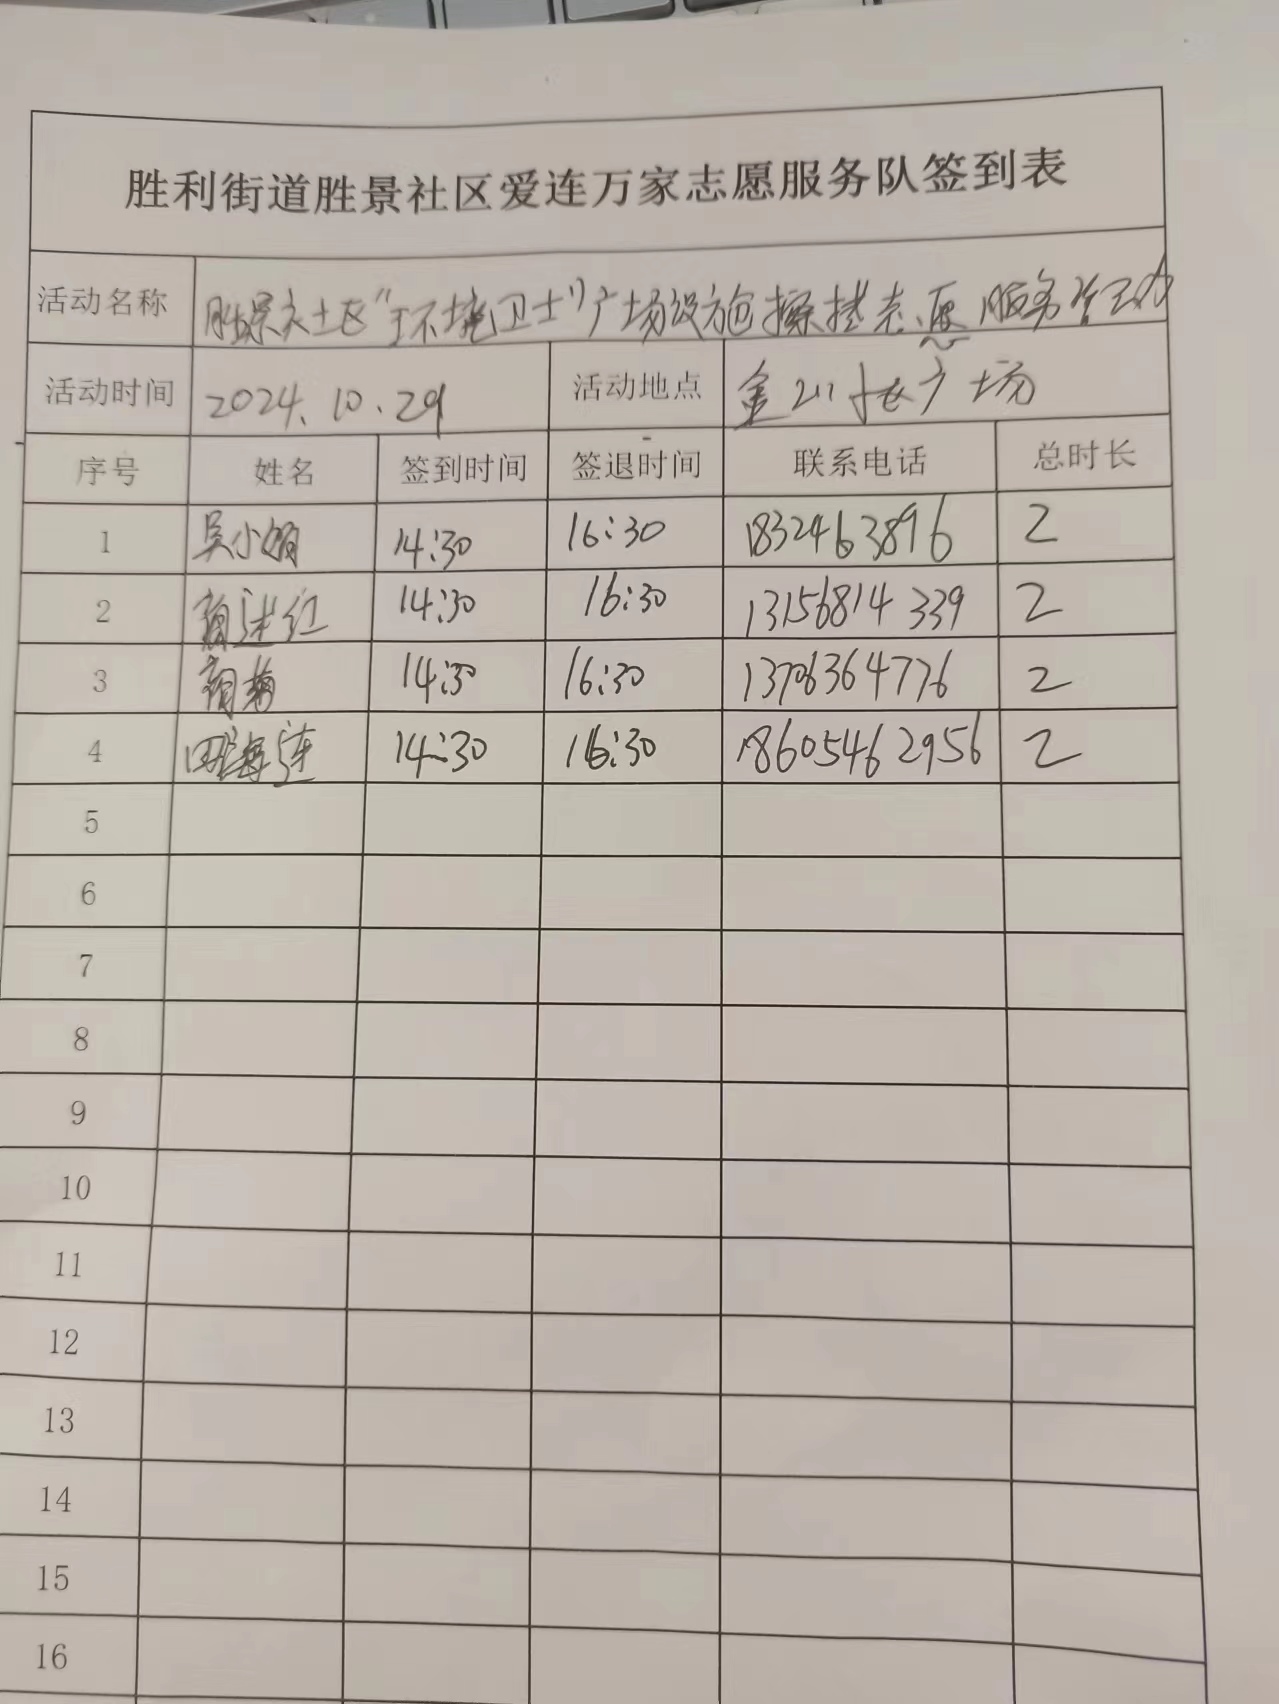 胜利街道胜景社区爱连万家志愿服务队签到表
活动名称 胜景社区“环境卫士”广场设施擦拭志愿服务活动
活动时间 2024.10.29 活动地点 广场
序号 姓名 签到时间 签退时间 联系电话 总时长
1 吴小娟 14:30 16:30 1832463896 2
2 14:30 16:30 13156814339 2
3 14:30 16:30 13706364776 2
4 田海连 14:30 16:30 18605462956 2
5
6
7
8
9
10
11
12
13
14
15
16